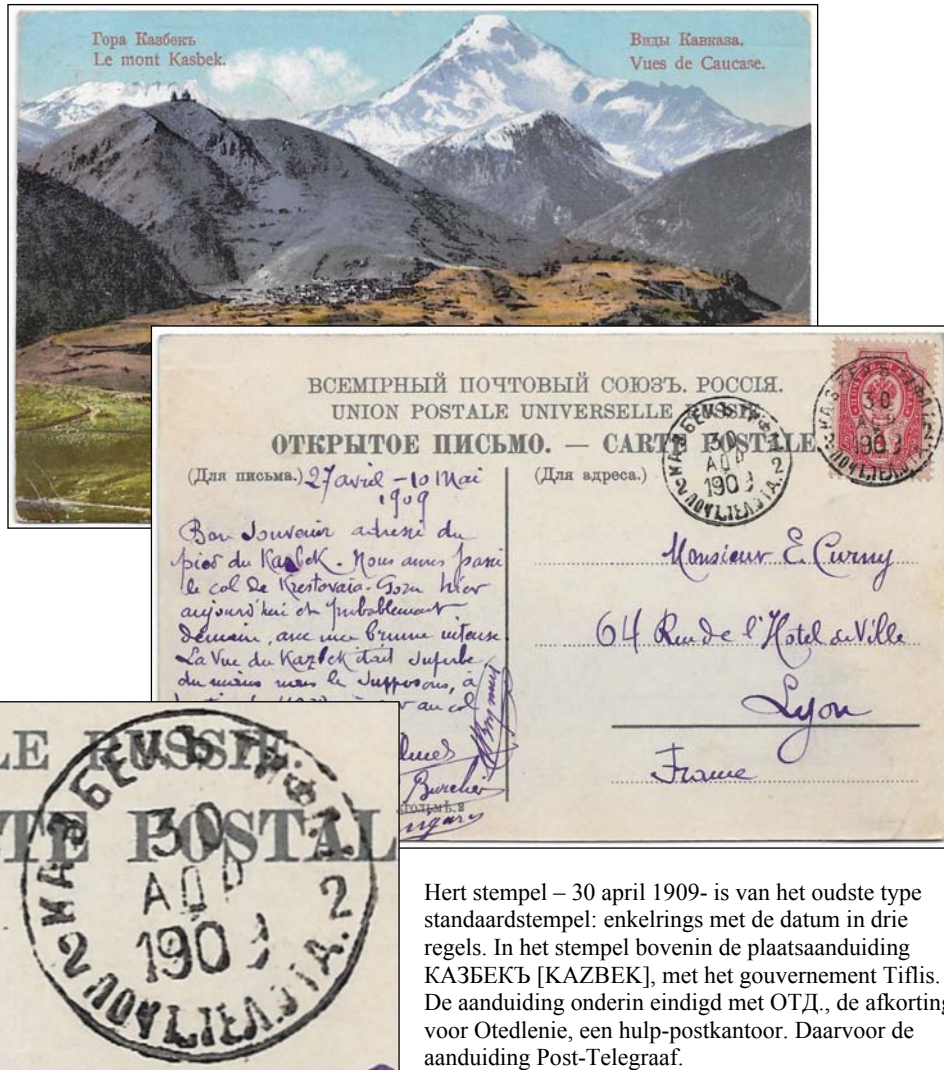 Гора Казбекъ
Le mont Kasbek.
Виды Кавказа.
Vues de Caucase.
ВСЕМІРНЫЙ ПОЧТОВЫЙ СОЮЗЪ. РОССІЯ.
UNION POSTALE UNIVERSELLE RUSSIE
ОТКРЫТОЕ ПИСЬМО. — CARTE POSTALE
(Для письма.)
(Для адреса.)
27 avril - 10 Mai
1909
Bon Souvenir adressé du
pied du Kazbek. Nous avons passé
le col de Krestovaia-Gora hier
aujourd'hui et probablement
demain, avec une brume intense.
La Vue du Kazbek était superbe
du moins nous le supposons, à
au col
Monsieur E. Curny
64 Rue de l'Hotel de Ville
Lyon
France
КАЗБЕКЪ ТИФЛ.
30
АПР
1909
2 ПОЧТ.ТЕЛ.ОТД. 2
КАЗБЕКЪ ТИФЛ.
30
АПР
1909
2 ПОЧТ.ТЕЛ.ОТД. 2
LE RUSSIE
TE POSTAL
КАЗБЕКЪ ТИФЛ.
30
АПР
190
2 ПОЧТ.ТЕЛ.ОТД. 2
Hert stempel – 30 april 1909- is van het oudste type
standaardstempel: enkelrings met de datum in drie
regels. In het stempel bovenin de plaatsaanduiding
КАЗБЕКЪ [KAZBEK], met het gouvernement Tiflis.
De aanduiding onderin eindigd met ОТД., de afkorting
voor Otedlenie, een hulp-postkantoor. Daarvoor de
aanduiding Post-Telegraaf.